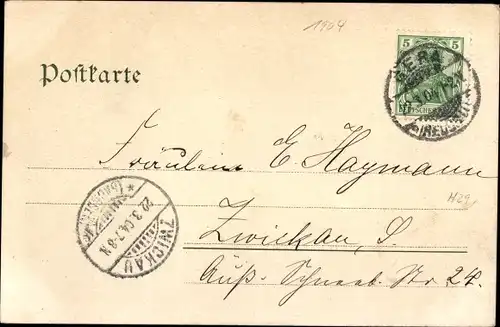 1904
Postkarte
5 5
GERA
(REUSS)
Fräulein E. Haymann
H29.
Zwickau, S.
Äuß. Schneeb. Str. 24.
ZWICKAU
22.3.04.7-8.N.